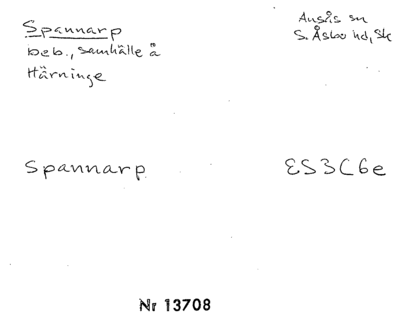 Spannarp
beb., samhälle å
Härninge
Ausås sn
S. Åsbo hd, Sk
Spannarp
ES3C6e
Nr 13708